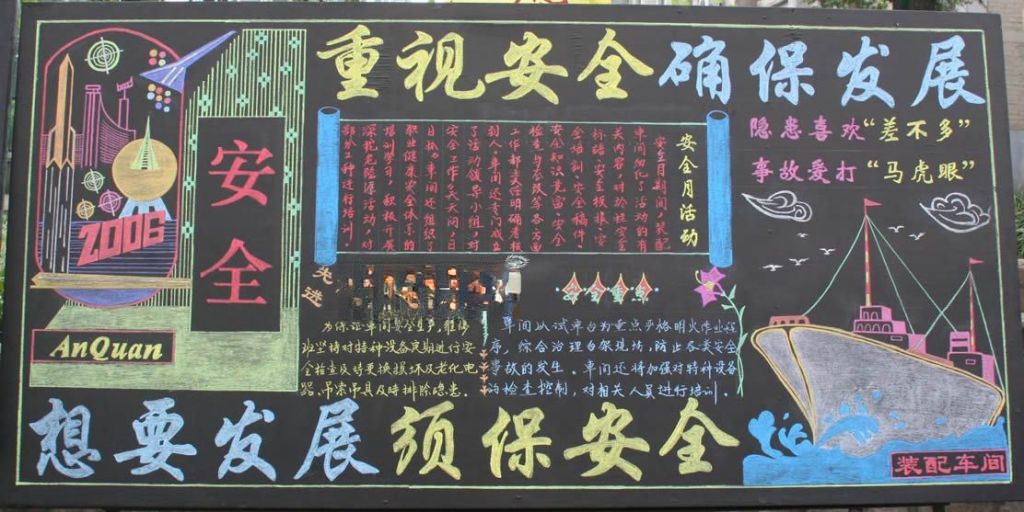 重视安全确保发展
隐患喜欢“差不多”
事故爱打“马虎眼”
安全
2006
AnQuan
安全月活动
安全月期间，装配
车间细化了活动的有
关内容，对於挂安全
标语、安全板报、安
全培训、安全稿件、
安全知识竞赛、安全
检查与整改等各方面
工作都责任明确考核
到人。车间还专门成立
了活动领导小组，对
安全工作天天问、日
日抓。车间还组织了
职业健康安全体系的
培训学习，积极开展
深挖危险源活动，对
部分工种进行培训。
先进
为保证车间安全生产，维修
班坚持对特种设备定期进行安
全检查及对更换损坏及老化电
器、吊索吊具及时排除隐患。
安全重点
车间以试车台为重点严格明火作业程
序，综合治理台架现场，防止各类安全
事故的发生。车间还将加强对特种设备
的检查控制，对相关人员进行培训。
想要发展须保安全
装配车间